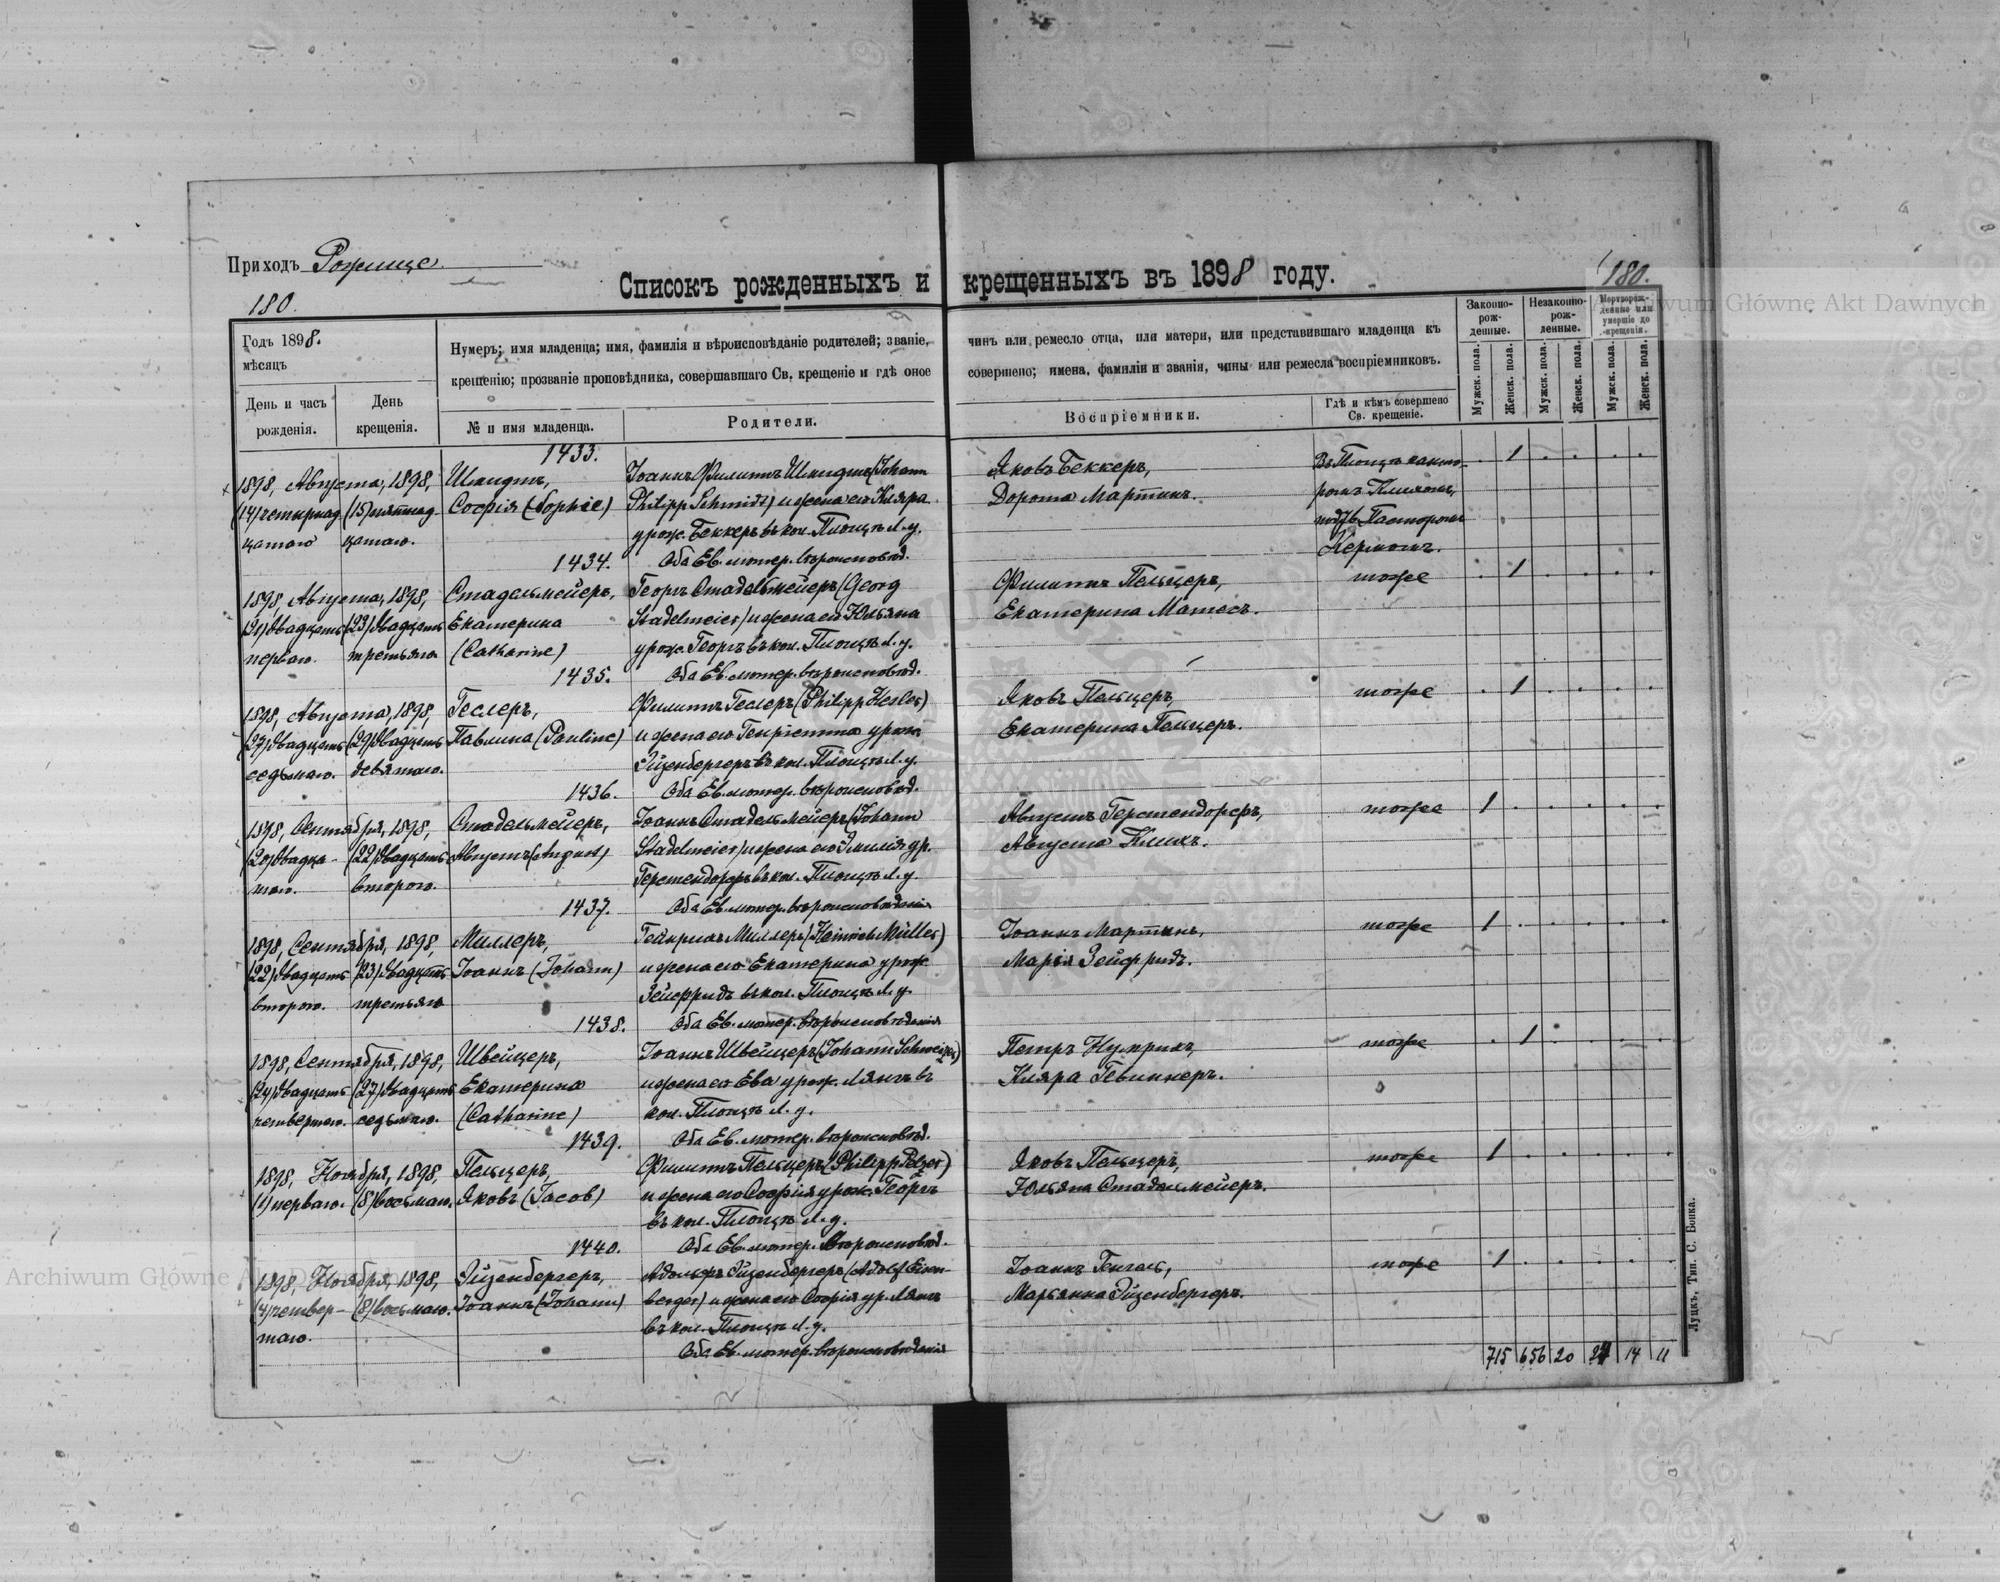 Приходъ Рожище
180.
Списокъ рожденныхъ и крещенныхъ въ 1898 году.
180.
Archiwum Główne Akt Dawnych
Годъ 1898.
мѣсяцъ
День и часъ рожденія.
День крещенія.
Нумеръ; имя младенца; имя, фамилія и вѣроисповѣданіе родителей; званіе, чинъ или ремесло отца, или матери, или представившаго младенца къ
крещенію; прозваніе проповѣдника, совершавшаго Св. крещеніе и гдѣ оное совершено; имена, фамиліи и званія, чины или ремесла воспріемниковъ.
№ и имя младенца.
Родители.
Воспріемники.
Гдѣ и кѣмъ совершено Св. крещеніе.
Законно-рож-денные.
Незаконно-рож-ленные.
Мертворож-денные или умершіе до крещенія.
Мужск. пола.
Женск. пола.
Мужск. пола.
Женск. пола.
Мужск. пола.
Женск. пола.
1433.
1898, Августа, 1898,
(14) четырнад (15) пятнад
цатаго цатаго.
Шмидтъ,
Софія (Sophie)
Іоаннъ Филиппъ Шмидтъ (Johann
Philipp Schmidt) и жена его Клара
урож. Беккеръ въ кол. Площъ Л. у.
Оба Ев. лютер. вѣроисповѣд.
Яковъ Беккеръ,
Дорота Мартинъ.
Въ Площъ канто-
ромъ
Пасторомъ
Кермомъ.
1
1434.
1898, Августа, 1898,
(21) двадцать (23) двадцать
перваго. третьяго
Стадельмейеръ,
Екатерина
(Catharine)
Георгъ Стадельмейеръ (Georg
Stadelmeier) и жена его Юльяна
урож. Георгъ въ кол. Площъ Л. у.
Оба Ев. лютер. вѣроисповѣд.
Филиппъ Пельцеръ,
Екатерина Матесъ.
тоже
1
1435.
1898, Августа, 1898,
(27) двадцать (29) двадцать
седьмаго. девятаго.
Геслеръ,
Павлина (Pauline)
Филиппъ Геслеръ (Philipp Hesler)
и жена его Генріетта урож.
Эйзенбергеръ въ кол. Площъ Л. у.
Оба Ев. лютер. вѣроисповѣд.
Яковъ Пельцеръ,
Екатерина Пельцеръ.
тоже
1
1436.
1898, Сентября, 1898,
(20) двадца- (22) двадцать
таго. второго.
Стадельмейеръ,
Августъ (August)
Іоаннъ Стадельмейеръ (Johann
Stadelmeier) и жена его Эмилія ур.
Герстендорфъ въ кол. Площъ Л. у.
Оба Ев. лютер. вѣроисповѣданія
Августъ Герстендорфъ,
Августа Кликъ.
тоже
1
1437.
1898, Сентября, 1898,
(22) двадцать (23) двадцать
второго. третьяго
Миллеръ,
Іоаннъ (Johann)
Гейнрихъ Миллеръ (Heinrich Müller)
и жена его Екатерина урож
Зейфридъ въ кол. Площъ Л. у.
Оба Ев. лютер. вѣроисповѣданія
Іоаннъ Мартинъ,
Марія Зейфридъ.
тоже
1
1438.
1898, Сентября, 1898,
(24) двадцать (27) двадцать
четвертаго. седьмаго.
Швейцеръ,
Екатерина
(Catharine)
Іоаннъ Швейцеръ (Johann Schweizer)
и жена его Ева урож. Лянгъ въ
кол. Площъ Л. у.
Оба Ев. лютер. вѣроисповѣд.
Петръ Нумрихъ,
Клара Гевиннеръ.
тоже
1
1439.
1898, Ноября, 1898,
(1) перваго. (8) восьмаго.
Пельцеръ,
Яковъ (Jacob)
Филиппъ Пельцеръ (Philipp Pelzer)
и жена его Софія урож. Георгъ
въ кол. Площъ Л. у.
Оба Ев. лютер. вѣроисповѣд.
Яковъ Пельцеръ,
Юльяна Стадельмейеръ.
тоже
1
1440.
1898, Ноября, 1898,
(4) четвер- (8) восьмаго.
таго.
Эйзенбергеръ,
Іоаннъ (Johann)
Адольфъ Эйзенбергеръ (Adolf Eisen-
berger) и жена его Софія ур. Лянгъ
въ кол. Площъ Л. у.
Оба Ев. лютер. вѣроисповѣданія
Іоаннъ Генгаль,
Марьянна Эйзенбергеръ.
тоже
1
715 656 20 14 11
Луцкъ, Тип. С. Бонка.
Archiwum Główne Akt Dawnych